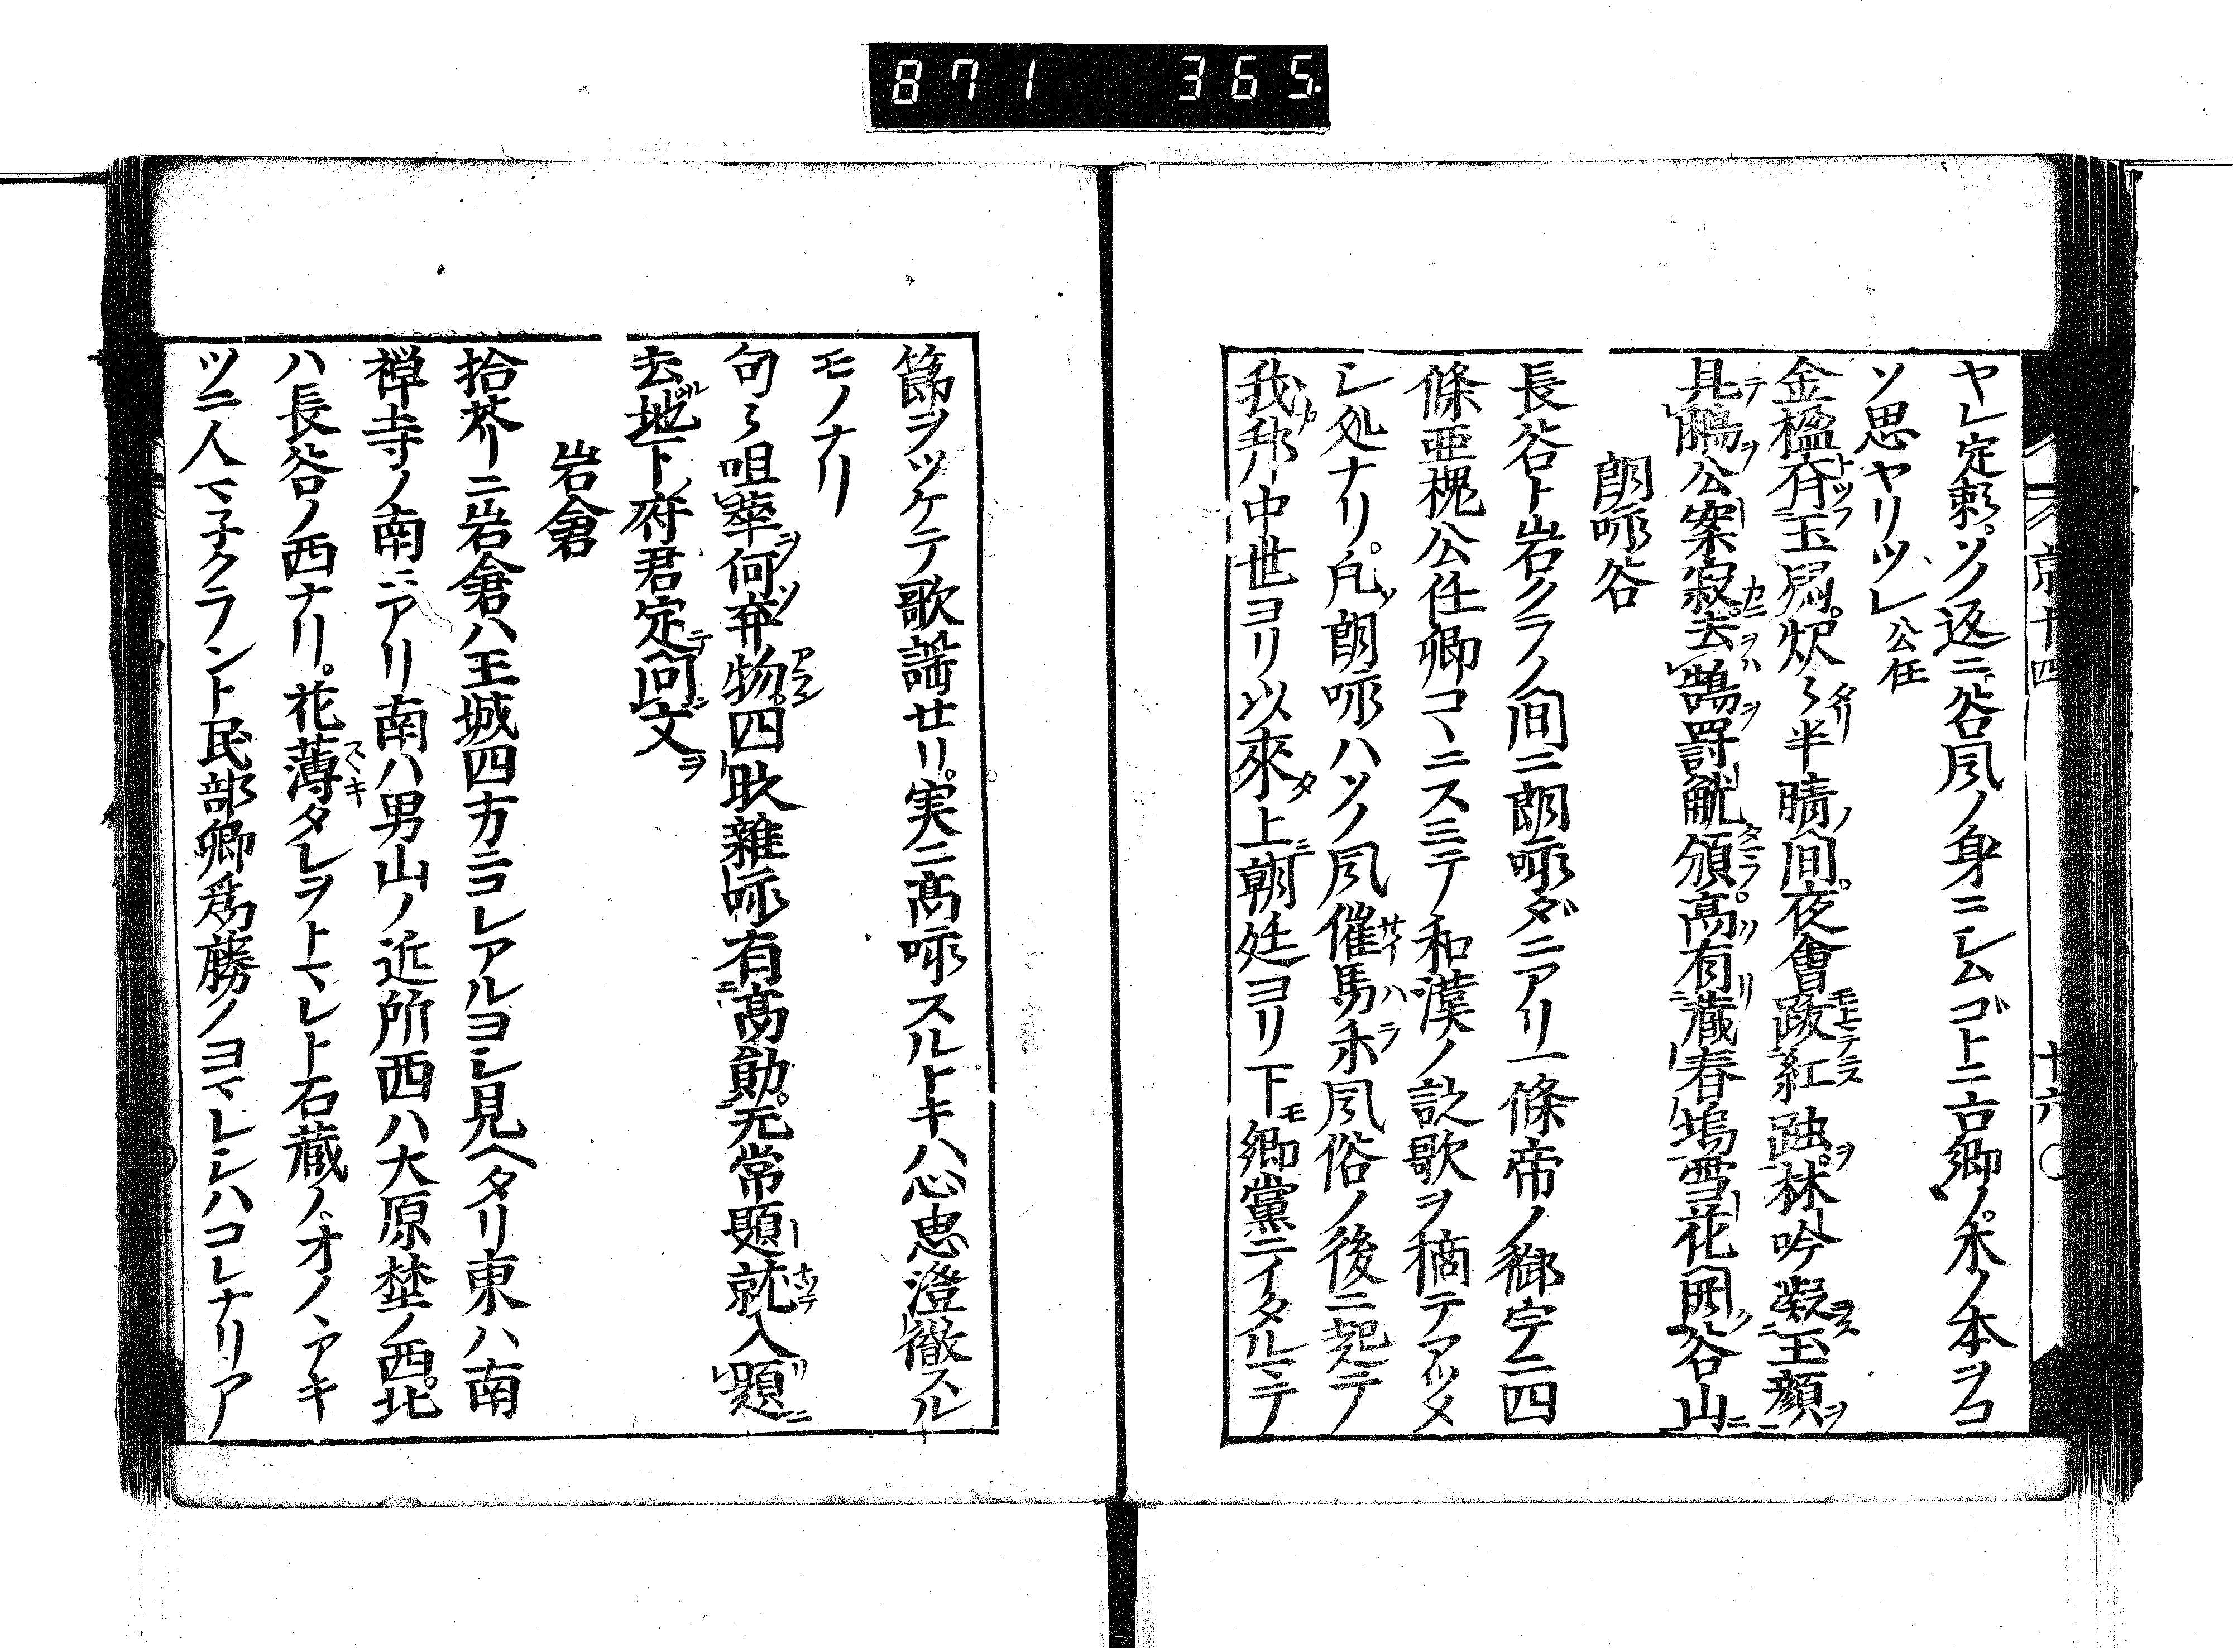 871 365.
京十四
十六
ヤレ定頼。ソノ返ニ谷風ノ身ニシムゴトニ古郷ノ。木ノ本ヲコ
ソ思ヤリツレ公任
金楹
玉
半晴ノ間。夜會
紅
林。吟
玉顔ヲ
具テ
公案寂
高有藏春塢雪花
谷山ニ
朗咏谷
長谷ト岩クラノ間ニ朗咏ダニアリ一條帝ノ御宇ニ四
條亜槐公任卿コヽニスミテ和漢ノ訟歌ヲ摘テアツメ
シ処ナリ。凡ソ朗咏ハソノ風催馬楽風俗ノ後ニ起テ
我邦中世ヨリ以來タ上ミ朝廷ヨリ下モ卿黨ニイタルマテ
節ヲツケテ歌謡セリ。実ニ髙咏スルトキハ心思澄徹スル
モノナリ
句〻咀華何
物。四
雜咏有髙勛。元常題就入題
去地下府君定テ問文ヲ
岩倉
拾芥ーニ岩倉ハ王城四方ニコレアルヨシ見ヘタリ東ハ南
禅寺ノ南ニアリ南ハ男山ノ近所西ハ大原埜ノ西。北
ハ長谷ノ西ナリ。花薄タレヲトマレト石蔵ノオノヽアキ
ツニ人マ子クラント民部卿爲勝ノヨマレシハコレナリア